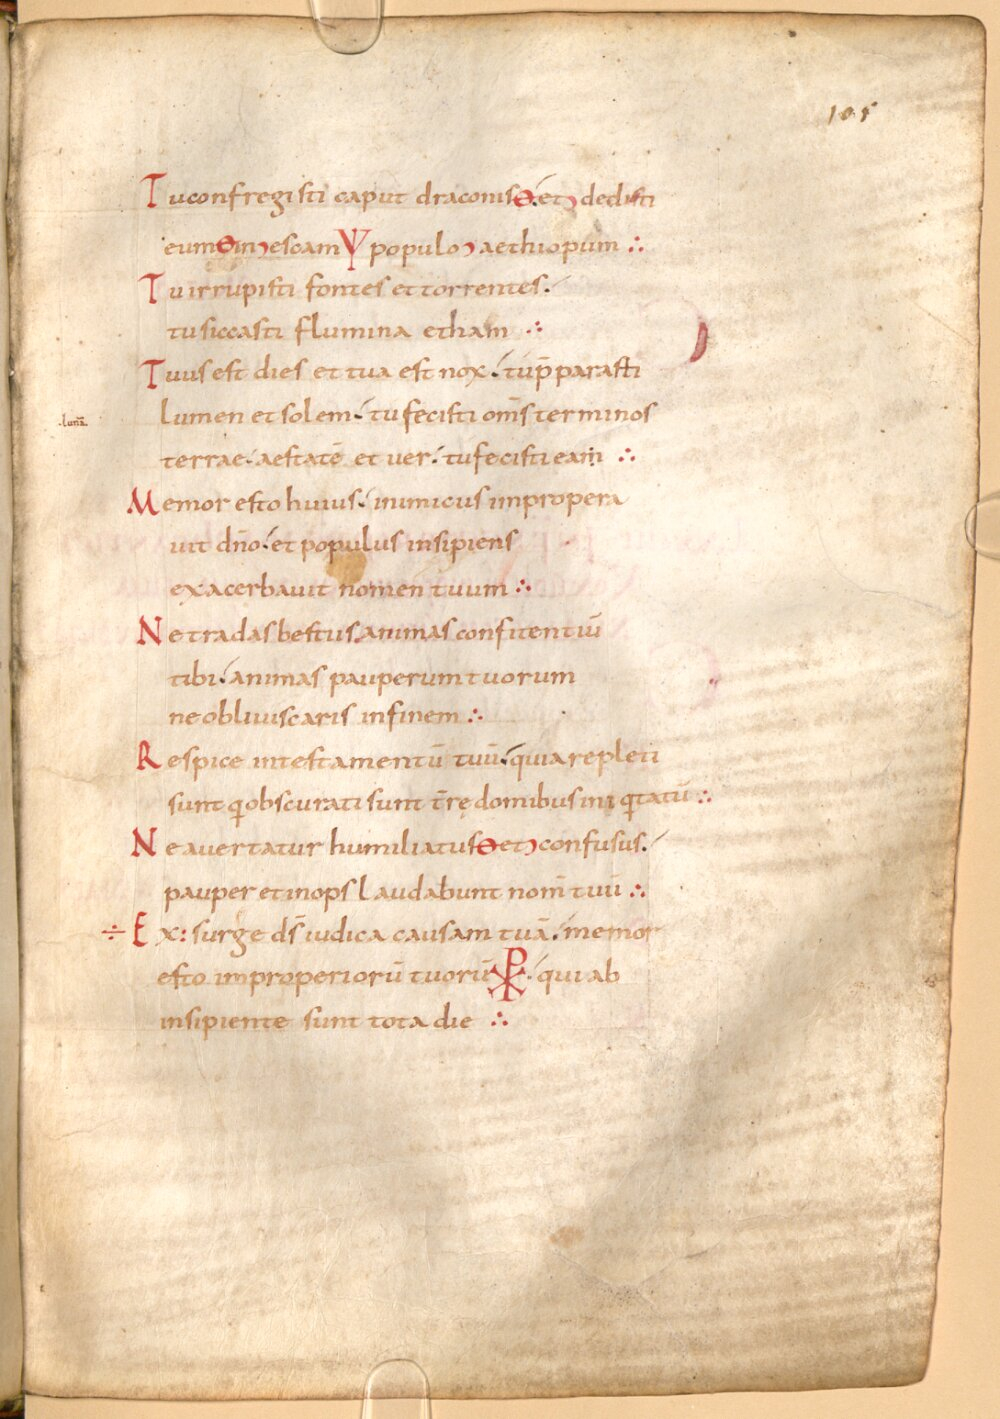 105
Tu confregisti caput draconis Θ et ɔ dedisti
eum Θ in ɔ escam Ψ populo ɔ aethiopum ∴
Tu irrupisti fontes et torrentes.
tu siccasti flumina etham ∴
Tuus est dies et tua est nox. tu p̄parasti
.lunā. lumen et solem. tu fecisti om̄s terminos
terrae. aestatē et ver. tu fecisti eam ∴
Memor esto huius. inimicus impropera
uit dn̄o. et populus insipiens
exacerbauit nomen tuum ∴
Ne tradas bestiis animas confitentiū
tibi. animas pauperum tuorum
ne obliuiscaris in finem ∴
Respice in testamentū tuū. quia repleti
sunt q obscurati sunt t̄rę domibus iniq̇tatū ∴
Ne auertatur humiliatus Θ et ɔ confusus.
pauper et inops laudabunt nom̄ tuū ∴
÷ Ex: surge ds̄ iudica causam tuā. memor
esto improperiorū tuorū ☧. qui ab
insipiente sunt tota die ∴